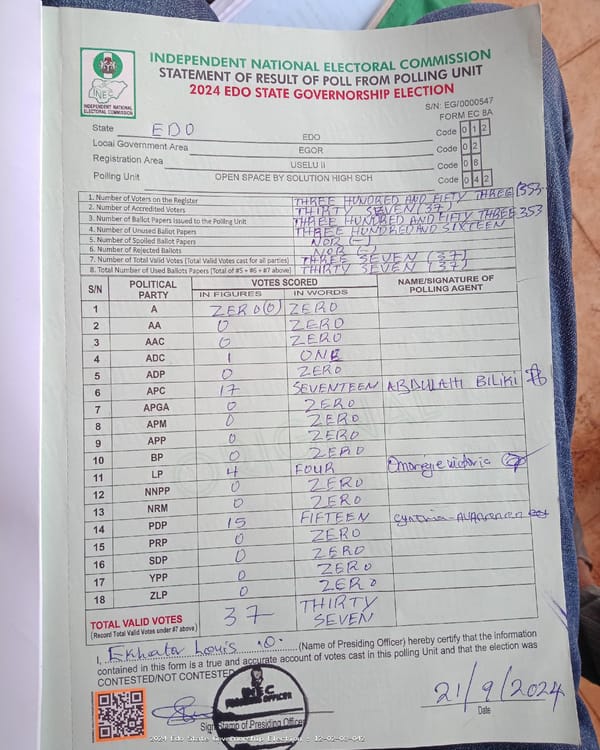 INDEPENDENT NATIONAL ELECTORAL COMMISSION
STATEMENT OF RESULT OF POLL FROM POLLING UNIT
2024 EDO STATE GOVERNORSHIP ELECTION
INEC
INDEPENDENT NATIONAL ELECTORAL COMMISSION
S/N: EG/0000547
FORM EC 8A
State EDO Code 012
Local Government Area EDO
EGOR Code 02
Registration Area USELU II Code 08
Polling Unit OPEN SPACE BY SOLUTION HIGH SCH Code 042
1. Number of Voters on the Register THREE HUNDRED AND FIFTY THREE (353
2. Number of Accredited Voters THIRTY SEVEN (37)
3. Number of Ballot Papers Issued to the Polling Unit THREE HUNDRED AND FIFTY THREE 353
4. Number of Unused Ballot Papers THREE HUNDRED AND SIXTEEN
5. Number of Spoiled Ballot Papers NOR (-)
6. Number of Rejected Ballots NOR (-)
7. Number of Total Valid Votes (Total Valid Votes cast for all parties) THREE SEVEN (37)
8. Total Number of Used Ballots Papers (Total of #5 + #6 + #7 above) THIRTY SEVEN (37)
S/N POLITICAL PARTY VOTES SCORED NAME/SIGNATURE OF POLLING AGENT
IN FIGURES IN WORDS
1 A ZERO (0) ZERO
2 AA 0 ZERO
3 AAC 0 ZERO
4 ADC 1 ONE
5 ADP 0 ZERO
6 APC 17 SEVENTEEN ABDULAHI BILIKI
7 APGA 0 ZERO
8 APM 0 ZERO
9 APP 0 ZERO
10 BP 0 ZERO
11 LP 4 FOUR Omoregie victoria
12 NNPP 0 ZERO
13 NRM 0 ZERO
14 PDP 15 FIFTEEN Cynthia
15 PRP 0 ZERO
16 SDP 0 ZERO
17 YPP 0 ZERO
18 ZLP 0 ZERO
TOTAL VALID VOTES 37 THIRTY SEVEN
(Record Total Valid Votes under #7 above)
I, Ekhator Louis .O. (Name of Presiding Officer) hereby certify that the information
contained in this form is a true and accurate account of votes cast in this polling Unit and that the election was
CONTESTED/NOT CONTESTED
INEC
PRESIDING OFFICER
21/9/2024
Stamp of Presiding Officer
Date
2024 Edo State Governorship Election : 12-02-08-042